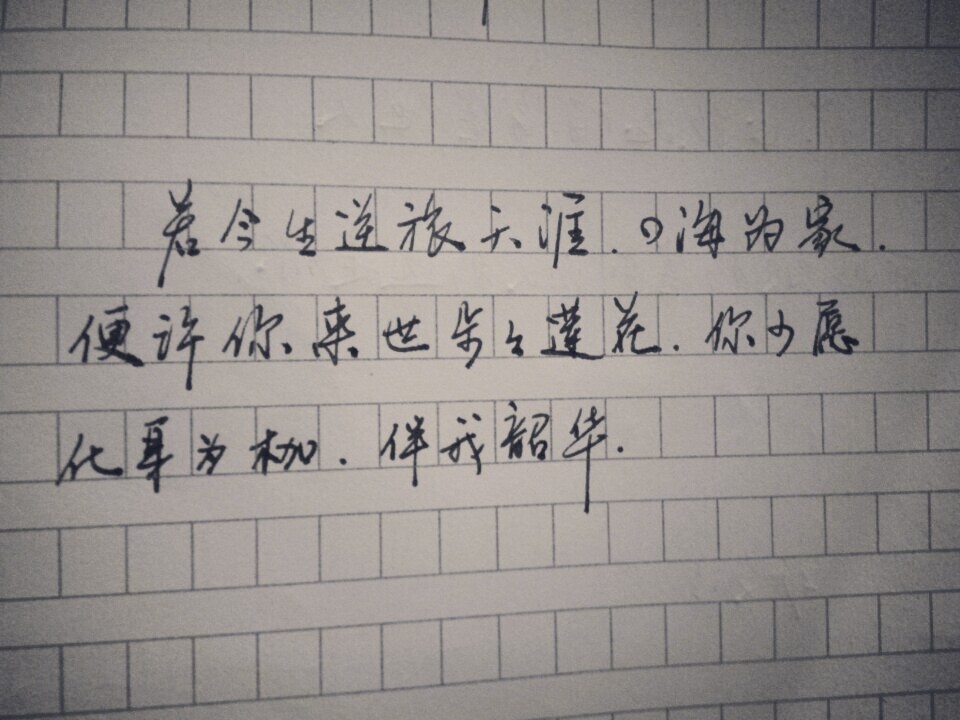 若今生逆旅天涯.四海为家.
便许你来世朵々莲花.你少愿
化身为枷.伴我韶华.